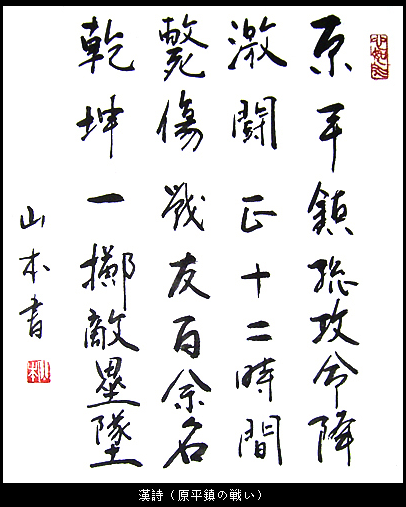 原平鎮総攻令降
激闘正十二時間
斃傷戦友百余名
乾坤一擲敵塁墜
山本書
漢詩（原平鎮の戦い）